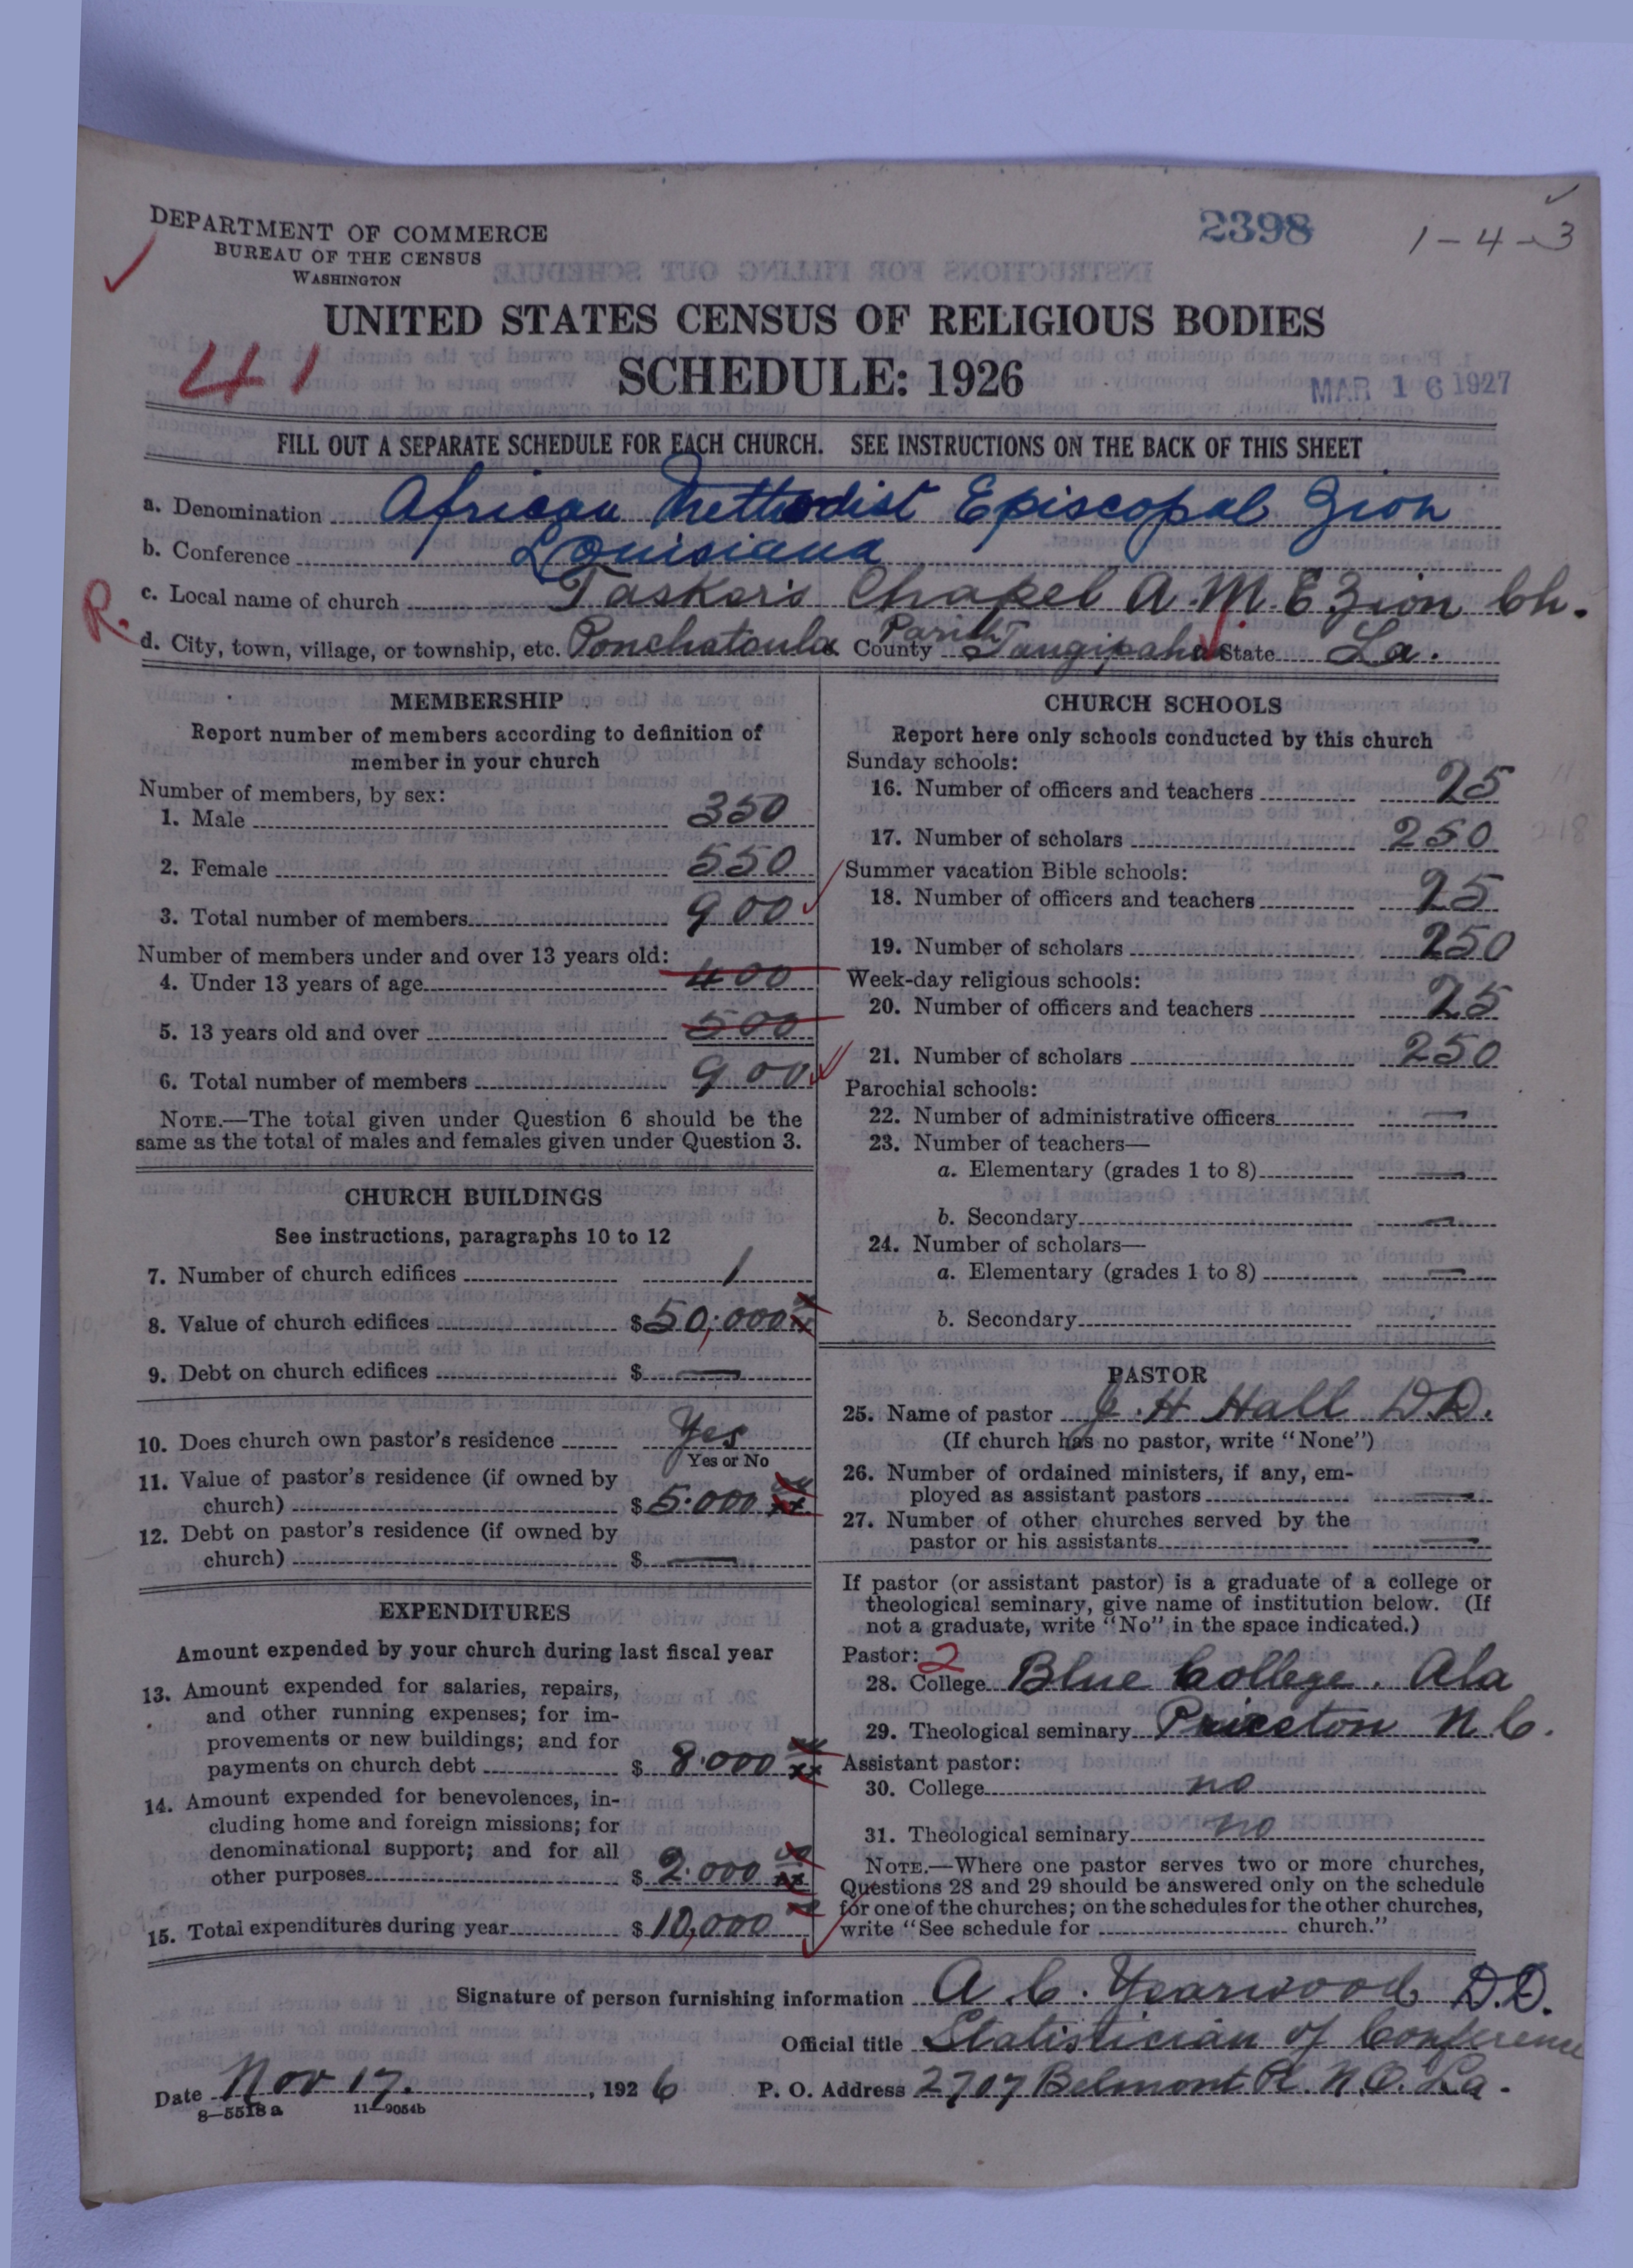 DEPARTMENT OF COMMERCE
BUREAU OF THE CENSUS
WASHINGTON
2398
1-4-3
UNITED STATES CENSUS OF RELIGIOUS BODIES
41
SCHEDULE: 1926
MAR 16 1927
FILL OUT A SEPARATE SCHEDULE FOR EACH CHURCH. SEE INSTRUCTIONS ON THE BACK OF THIS SHEET
a. Denomination African Methodist Episcopal Zion
b. Conference Louisiana
c. Local name of church Tasker's Chapel A.M.E Zion Ch.
R.
d. City, town, village, or township, etc. Ponchatoula County Parish Tangipahoa State La.
MEMBERSHIP
Report number of members according to definition of
member in your church
Number of members, by sex:
1. Male 350
2. Female 550
3. Total number of members 900
Number of members under and over 13 years old:
4. Under 13 years of age 400
5. 13 years old and over 500
6. Total number of members 900
NOTE.—The total given under Question 6 should be the
same as the total of males and females given under Question 3.
CHURCH BUILDINGS
See instructions, paragraphs 10 to 12
7. Number of church edifices 1
8. Value of church edifices $50,000
9. Debt on church edifices $ —
10. Does church own pastor's residence Yes
Yes or No
11. Value of pastor's residence (if owned by
church) $5.000
12. Debt on pastor's residence (if owned by
church) $ —
EXPENDITURES
Amount expended by your church during last fiscal year
13. Amount expended for salaries, repairs,
and other running expenses; for im-
provements or new buildings; and for
payments on church debt $ 8.000
14. Amount expended for benevolences, in-
cluding home and foreign missions; for
denominational support; and for all
other purposes $ 2.000
15. Total expenditures during year $ 10,000
CHURCH SCHOOLS
Report here only schools conducted by this church
Sunday schools:
16. Number of officers and teachers 25
17. Number of scholars 250
Summer vacation Bible schools:
18. Number of officers and teachers 25
19. Number of scholars 250
Week-day religious schools:
20. Number of officers and teachers 25
21. Number of scholars 250
Parochial schools:
22. Number of administrative officers —
23. Number of teachers—
a. Elementary (grades 1 to 8) —
b. Secondary —
24. Number of scholars—
a. Elementary (grades 1 to 8) —
b. Secondary
PASTOR
25. Name of pastor J. H Hall D.D.
(If church has no pastor, write "None")
26. Number of ordained ministers, if any, em-
ployed as assistant pastors —
27. Number of other churches served by the
pastor or his assistants —
If pastor (or assistant pastor) is a graduate of a college or
theological seminary, give name of institution below. (If
not a graduate, write "No" in the space indicated.)
Pastor: 2
28. College Blue College. Ala
29. Theological seminary N.C.
Assistant pastor:
30. College no
31. Theological seminary no
NOTE.—Where one pastor serves two or more churches,
Questions 28 and 29 should be answered only on the schedule
for one of the churches; on the schedules for the other churches,
write "See schedule for church."
Signature of person furnishing information A. C. Yearwood, D.D.
Official title Statistician of Conference
Date Nov 17. , 1926 P. O. Address 2707 Belmont Pl. N.O. La.
8—5518 a 11—9054b